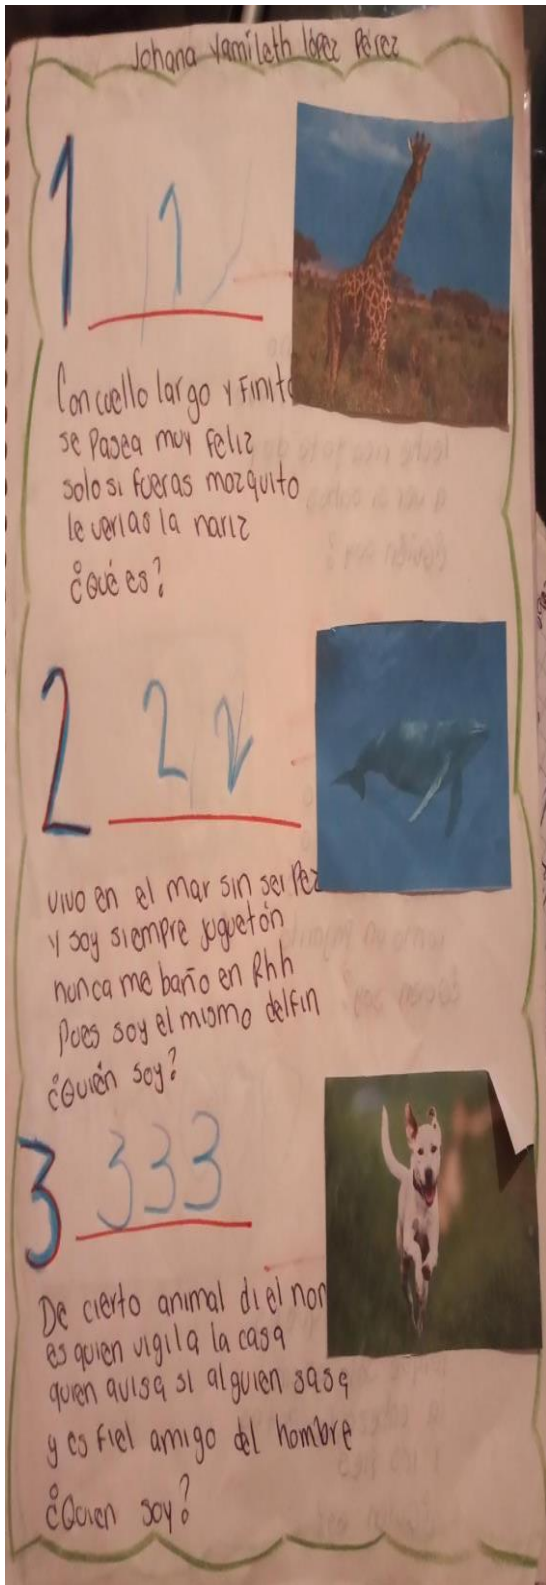 Johana Yamileth lópez Pérez
1 1
Con cuello largo y Finito
se Pasea muy Feliz
solo si fueras mozquito
le verias la nariz
¿Qué es?
2 2 2
vivo en el mar sin ser Pez
y soy siempre juguetón
nunca me baño en Rhh
Pues soy el mismo delfin
¿Quién soy?
3 333
De cierto animal di el nom
es quien vigila la casa
quien avisa si alguien sasa
y es Fiel amigo del hombre
¿Quien soy?